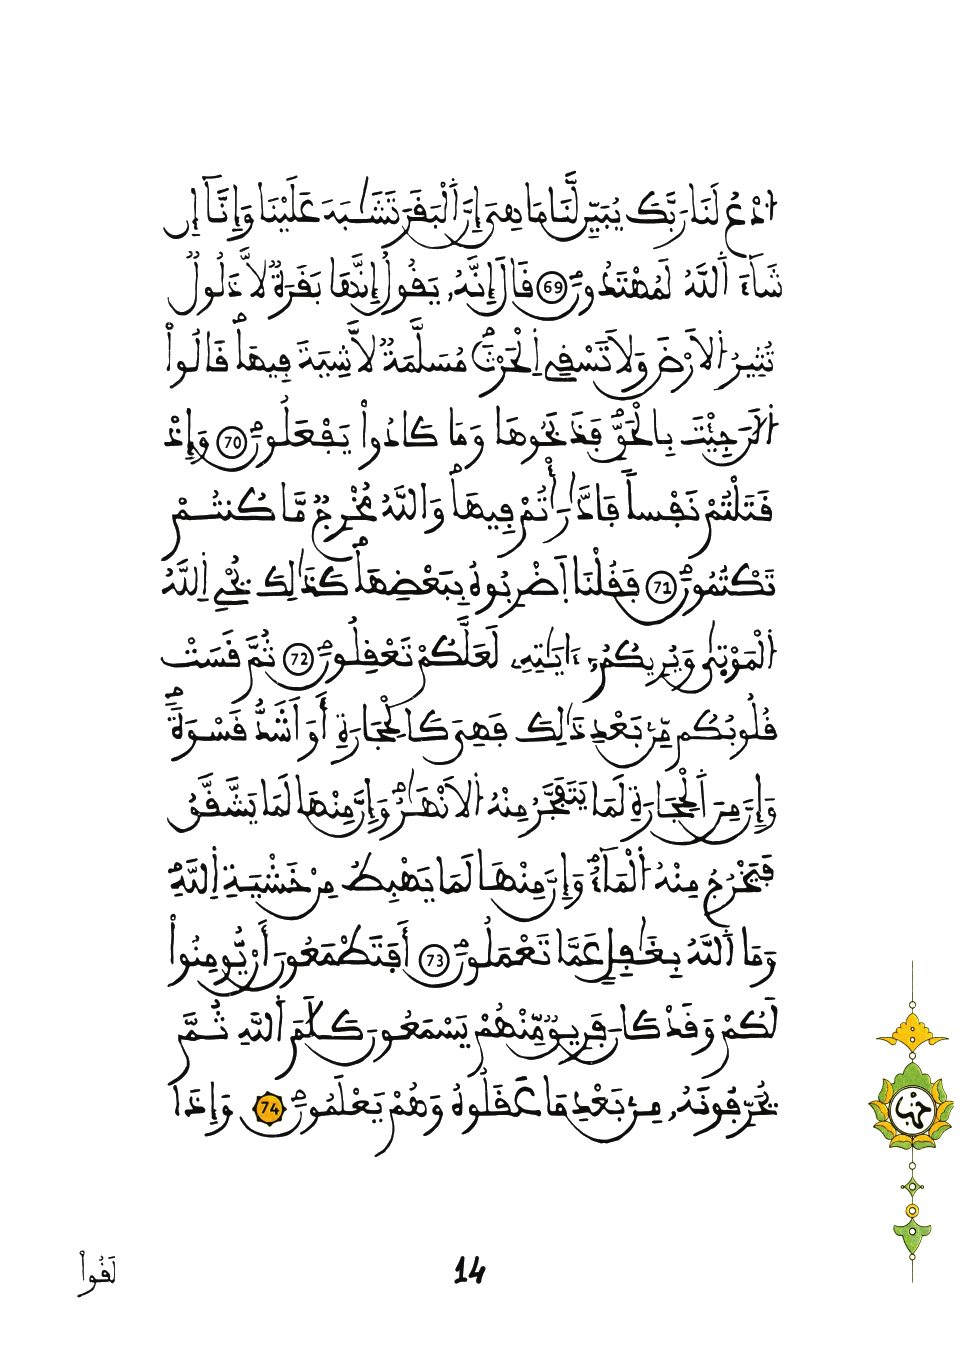 ادْعُ لَنَا رَبَّكَ يُبَيِّن لَّنَا مَا هِيَ إِنَّ اَ۬لْبَقَرَ تَشَٰبَهَ عَلَيْنَا وَإِنَّآ إِن
شَآءَ اَ۬للَّهُ لَمُهْتَدُونَۖ 69 قَالَ إِنَّهُۥ يَقُولُ إِنَّهَا بَقَرَةٞ لَّا ذَلُولٞ
تُثِيرُ اُ۬لَارْضَ وَلَا تَسْقِي اِ۬لْحَرْثَۖ مُسَلَّمَةٞ لَّا شِيَةَ فِيهَاۖ قَالُواْ
اُ۬لَٰنَ جِئْتَ بِالْحَقِّۖ فَذَبَحُوهَا وَمَا كَادُواْ يَفْعَلُونَۖ 70 وَإِذْ
قَتَلْتُمْ نَفْساٗ فَادَّٰرَٰٔتُمْ فِيهَاۖ وَاللَّهُ مُخْرِجٞ مَّا كُنتُمْ
تَكْتُمُونَۖ 71 فَقُلْنَا اَ۪ضْرِبُوهُ بِبَعْضِهَاۖ كَذَٰلِكَ يُحْيِ اِ۬للَّهُ
اُ۬لْمَوْتَىٰ وَيُرِيكُمُۥٓ ءَايَٰتِهِۦ لَعَلَّكُمْ تَعْقِلُونَۖ 72 ثُمَّ قَسَتْ
قُلُوبُكُم مِّنۢ بَعْدِ ذَٰلِكَ فَهِيَ كَالْحِجَارَةِ أَوَ اَشَدُّ قَسْوَةٗۖ
وَإِنَّ مِنَ اَ۬لْحِجَارَةِ لَمَا يَتَفَجَّرُ مِنْهُ اُ۬لَانْهَٰرُۖ وَإِنَّ مِنْهَا لَمَا يَشَّقَّقُ
فَيَخْرُجُ مِنْهُ اُ۬لْمَآءُۖ وَإِنَّ مِنْهَا لَمَا يَهْبِطُ مِنْ خَشْيَةِ اِ۬للَّهِۖ
وَمَا اَ۬للَّهُ بِغَٰفِلٍ عَمَّا تَعْمَلُونَۖ 73 أَفَتَطْمَعُونَ أَنْ يُّومِنُواْ
لَكُمْ وَقَدْ كَانَ فَرِيقٞ مِّنْهُمْ يَسْمَعُونَ كَلَٰمَ اَ۬للَّهِ ثُمَّ
يُحَرِّفُونَهُۥ مِنۢ بَعْدِ مَا عَقَلُوهُ وَهُمْ يَعْلَمُونَۖ 74 وَإِذَا
حزب
لَقُواْ
14